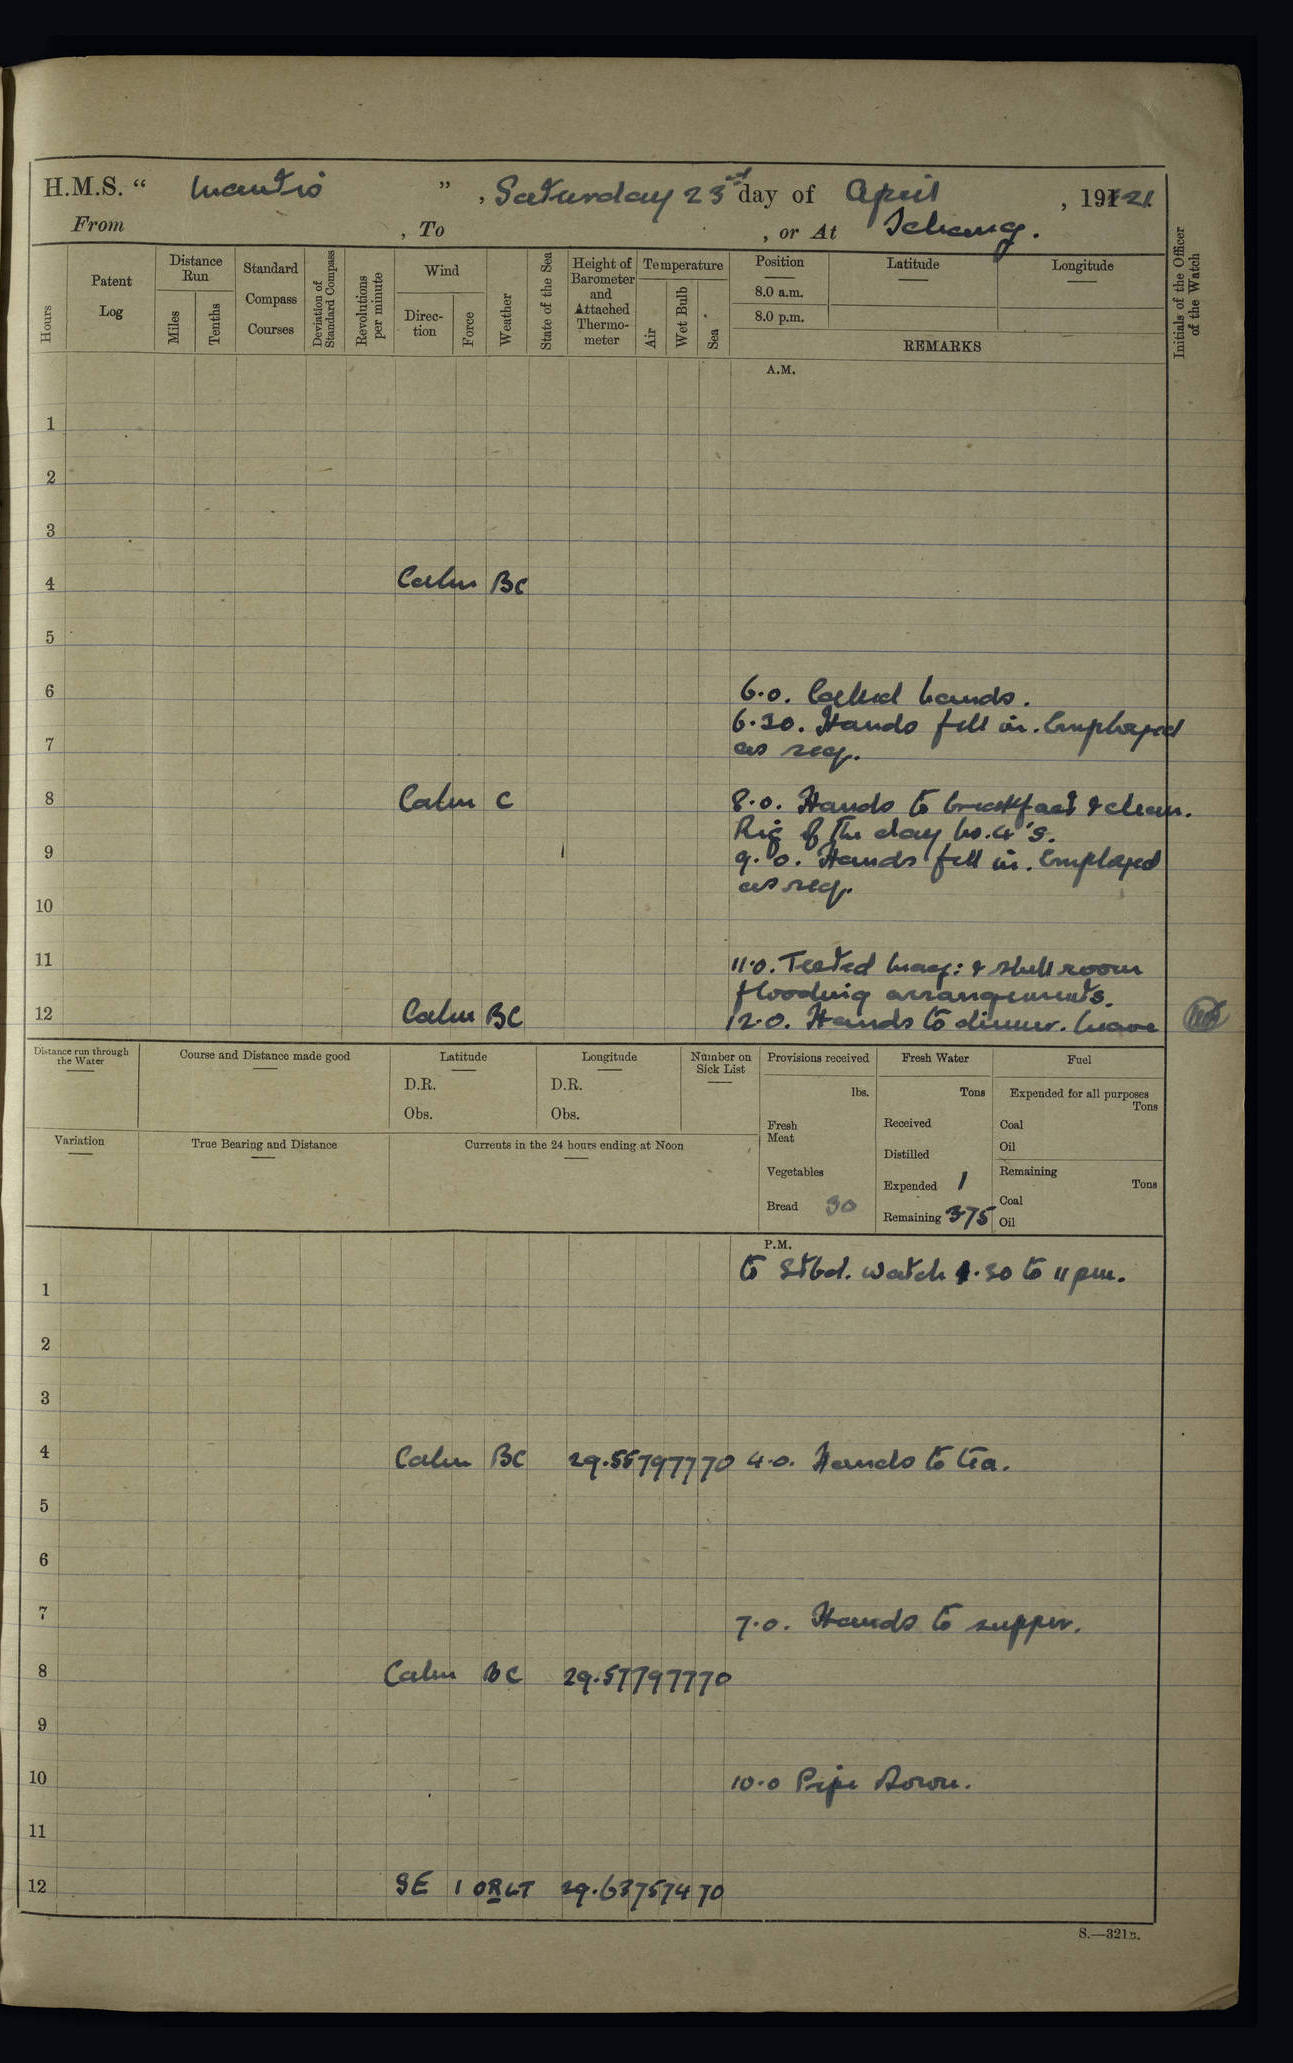 H.M.S. " Mantis ", Saturday 23rd day of April, 1921.
From , To , or At Ichang.
Hours
Patent Log
Distance Run
Miles
Tenths
Standard Compass Courses
Deviation of Standard Compass
Revolutions per minute
Wind
Direction
Force
Weather
State of the Sea
Height of Barometer and Attached Thermometer
Temperature
Air
Wet Bulb
Sea
Position
8.0 a.m.
8.0 p.m.
Latitude
Longitude
REMARKS
Initials of the Officer of the Watch
A.M.
1
2
3
4 Calm BC
5
6 6.0. Called hands.
6.30. Hands fell in. Employed
7 as req.
8 Calm C 8.0. Hands to breakfast & clean.
Rig of the day No. 4's.
9 9.0. Hands fell in. Employed
as req.
10
11 11.0. Tested mag: & shell room
flooding arrangements.
12 Calm BC 12.0. Hands to dinner. Leave
Distance run through the Water
Course and Distance made good
Latitude
D.R.
Obs.
Longitude
D.R.
Obs.
Number on Sick List
Provisions received
lbs.
Fresh Meat
Vegetables
Bread 30
Fresh Water
Tons
Received
Distilled
Expended 1
Remaining 375
Fuel
Expended for all purposes
Tons
Coal
Oil
Remaining
Tons
Coal
Oil
Variation
True Bearing and Distance
Currents in the 24 hours ending at Noon
P.M.
to Stbd. watch 1.30 to 11 pm.
1
2
3
4 Calm BC 29.55 79 77 70 4.0. Hands to tea.
5
6
7 7.0. Hands to supper.
8 Calm BC 29.57 79 77 70
9
10 10.0 Pipe Down.
11
12 SE 1 ORLT 29.63 75 74 70
S.—321B.